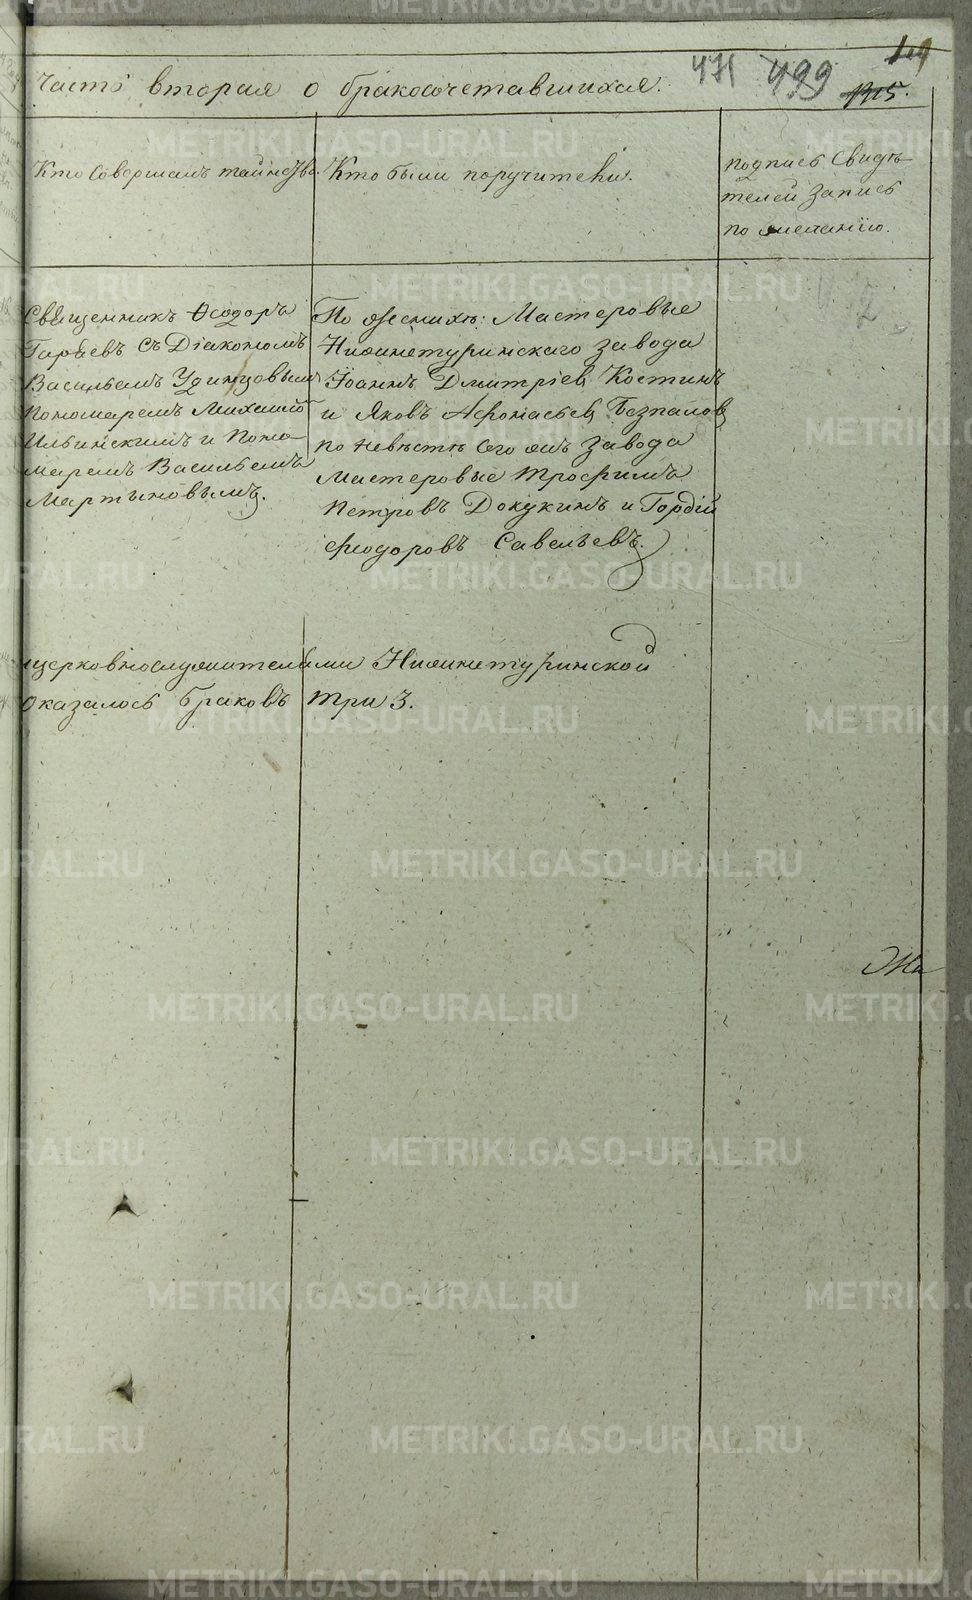 часть вторая о бракосочетавшихся.
471 499
1315.
Кто совершалъ таинство.
Кто были поручители.
подпись свидѣ-
телей запись
по желанію.
Священникъ Ѳеодоръ
съ Діакономъ
Васильемъ Удинцовымъ
пономаремъ Михаило
Ильинскимъ и Поно-
маремъ Васильемъ
Мартыновымъ.
По женихѣ: Мастеровые
Нижнетуринскаго завода
Іоаннъ Дмитріевъ Костинъ
и Яковъ Афонасьевъ Безпаловъ
по невѣстѣ сего жъ завода
Мастеровые Трофимъ
Петровъ Докукинъ и Гордій
Феодоровъ Савельевъ.
церковнослужителями Нижнетуринской
оказалось браковъ три 3.
METRIKI.GASO-URAL.RU